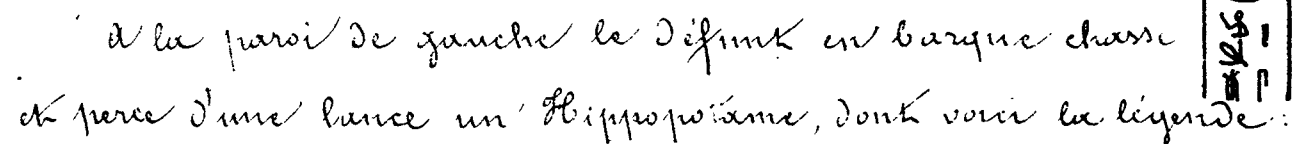 A la paroi de gauche le défunt en barque chasse
et perce d'une lance un Hippopotame, dont voici la légende: